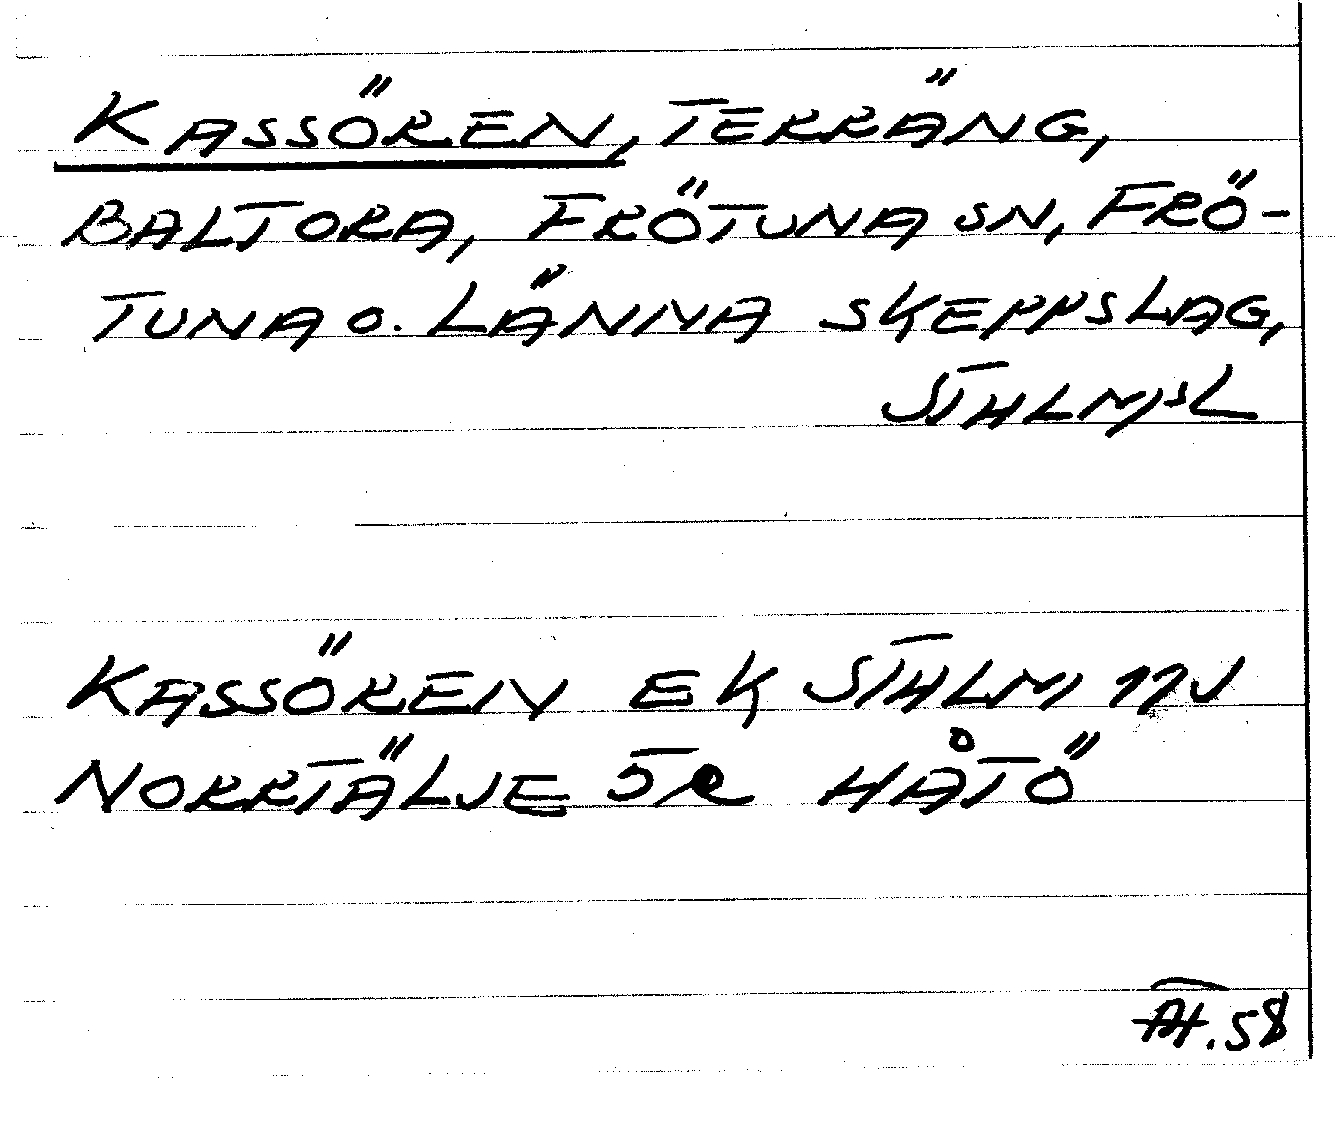 KASSÖREN, TERRÄNG,
BALTORA, FRÖTUNA SN, FRÖ-
TUNA O. LÄNNA SKEPPSLAG,
STHLMSL
KASSÖREN EK STHLM
NORRTÄLJE 5R HÅTÖ
.58